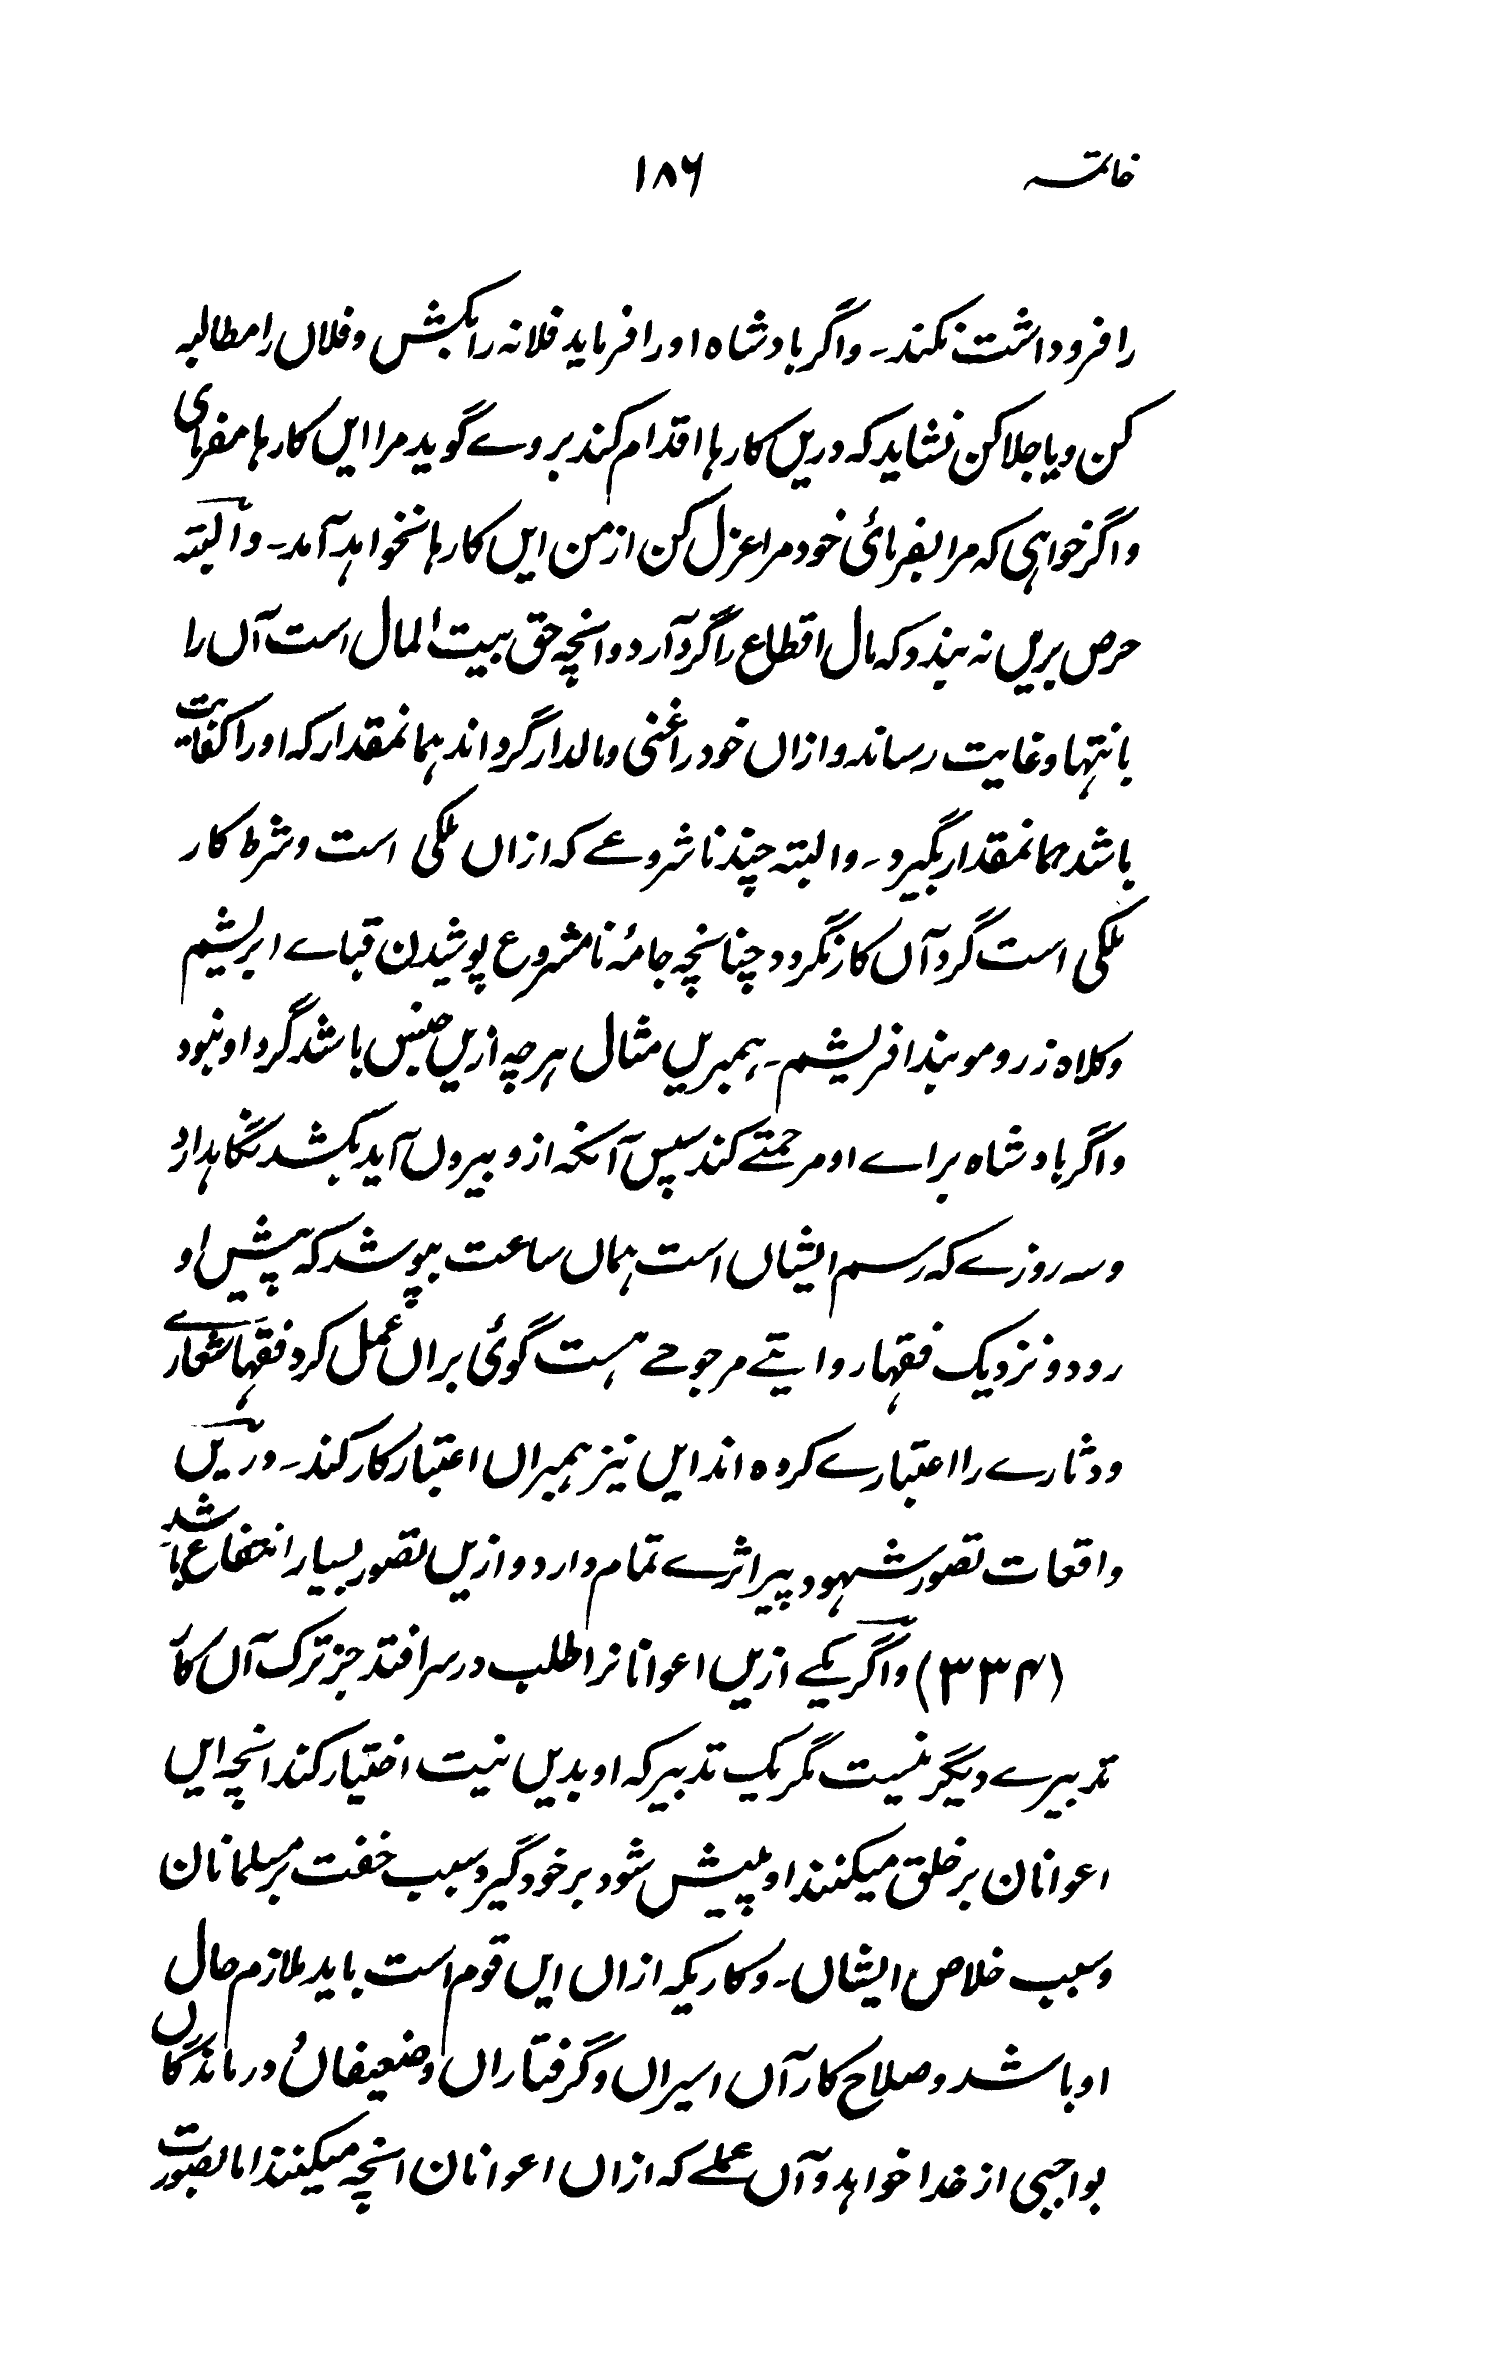 خاتمہ ۱۸۶
را فروداشت نکند۔ واگر بادشاہ اورا فرماید فلانہ را بکش وفلاں را مطالبہ
کن ویا جلا کن نشاید کہ دریں کارہا اقدام کند بروے گوید مرا ایں کارہا مفرمای
واگر خواہی کہ مرا بفرمائی خود مرا عزل کن از من ایں کارہا نخواہد آمد۔ والبتہ
حرص بریں نہ بندد کہ مال اقطاع را گرد آرد وانچہ حق بیت المال است آں را
بانتہا وغایت رساند وازاں خود را غنی ومالدار گرداند ہمانمقدار کہ اورا کفایت
باشد ہمانمقدار بگیرد۔ والبتہ چند نامشروعے کہ ازاں ملکی است وشرط کار
ملکی است گرد آں کار نگردد چنانچہ جامۂ نامشروع پوشیدن قباے ابریشیم
وکلاہ زر وموبند افریشم۔ ہمبریں مثال ہرچہ ازیں جنس باشد گرد او نبود
واگر بادشاہ براے او مرحمتے کند سپس آنکہ ازو بیروں آید بکشد نگاہدارد
وسہ روزے کہ رسم ایشاں است ہماں ساعت بپوشد کہ پیش او
رود ونزدیک فقہا روایتے مرجوحے ہست گوئی براں عمل کرد فقہا شعارے
ودثارے را اعتبارے کردہ اند ایں نیز ہمبراں اعتبار کار کند۔ ودریں
واقعات تصور شہود پیر اثرے تمام دارد وازیں تصور بسیار انتفاع باشد
(۳۳۴) واگر یکے ازیں اعوانانرا طلب در سر افتد جز ترک آں کار
تدبیرے دیگر نیست مگر یک تدبیر کہ او بدیں نیت اختیار کند انچہ ایں
اعوانان بر خلق میکنند او پیش شود بر خود گیرد سبب خفت بر مسلمانان
وسبب خلاص ایشاں۔ وکاریکہ ازاں ایں قوم است باید ملازم حال
او باشد وصلاح کار آں اسیراں وگرفتاراں وضعیفاں ودرماندگاں
بواجبی از خدا خواہد وآں عملے کہ ازاں اعوانان انچہ میکنند اما بصورت